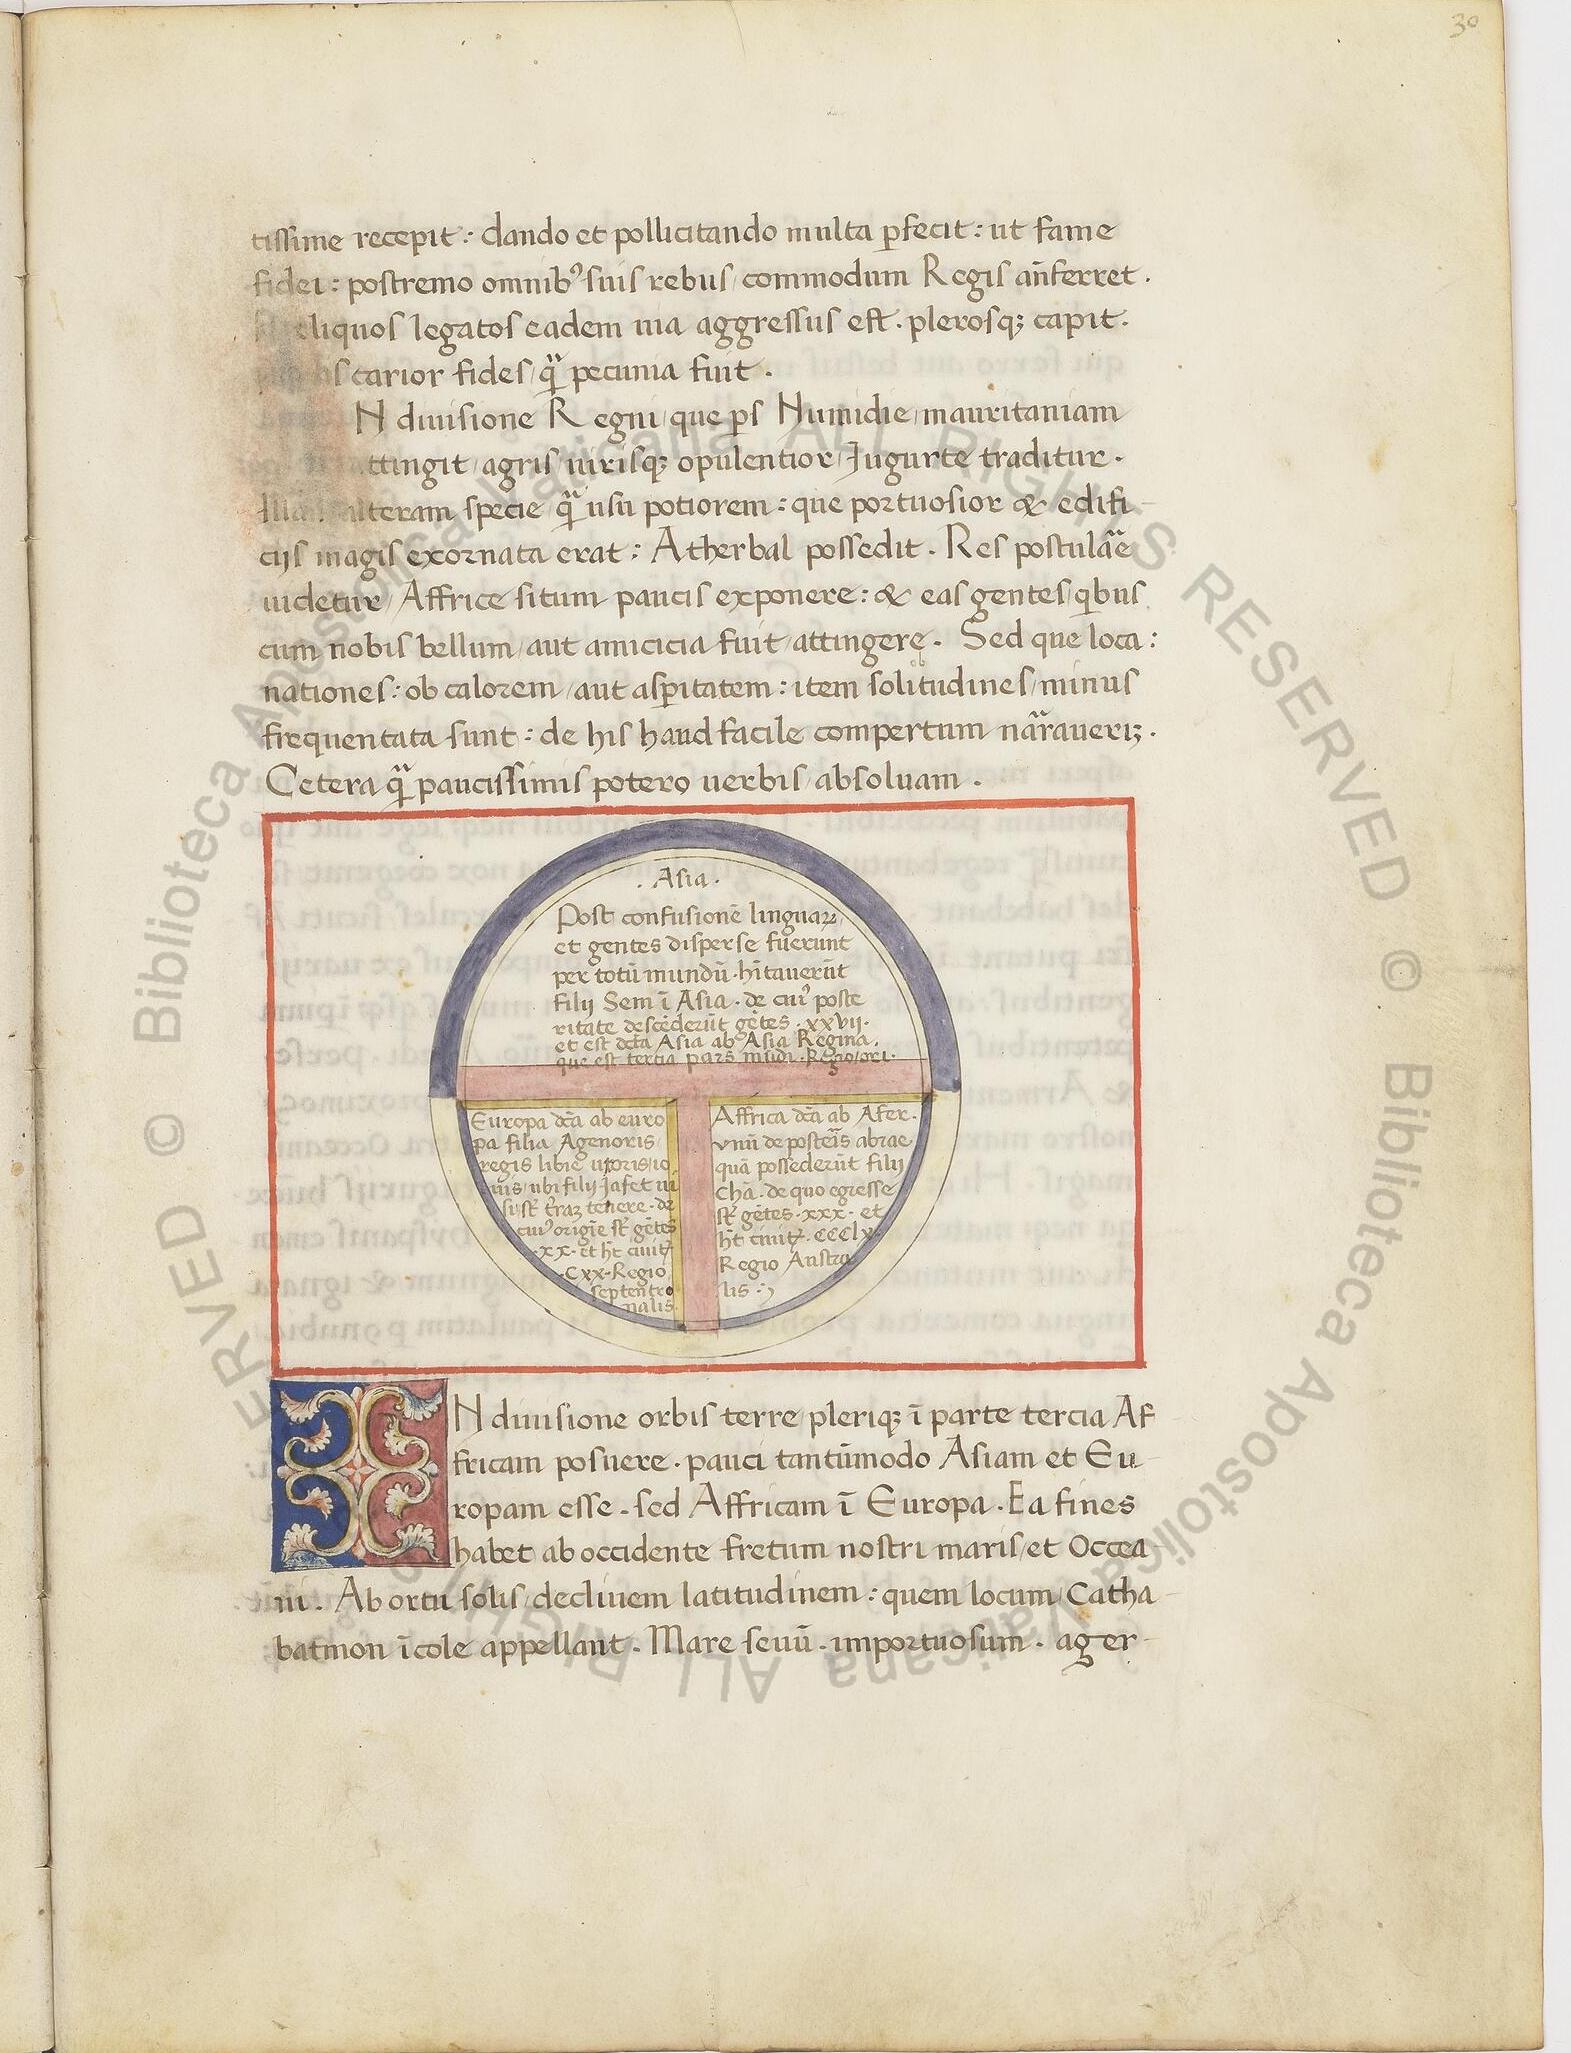 30
tissime recepit: dando et pollicitando multa pfecit: ut fame
fidei: postremo omnibꝰ suis rebus commodum Regis an̄ferret.
eliquos legatos eadem uia aggressus est. plerosqꝫ capit.
carior fides qͣ pecunia fuit.
N diuisione Regni que ps Numidie mauritaniam
ttingit agris uirisqꝫ opulentior Jugurte traditur.
alteram specie qͣ usu potiorem: que portuosior & edifi
cijs magis exornata erat: Atherbal possedit. Res postulaͣe
uidetur Affrice situm paucis exponere: & eas gentes qbus
cum nobis bellum aut amicicia fuit attingere. Sed que loca:
nationes: ob calorem aut aspitatem: item solitudines minus
frequentata sunt: de his haud facile compertum naͣraueriꝫ.
Cetera qͣ paucissimis potero uerbis absoluam.
. Asia .
Post confusionē linguaꝝ
et gentes disperse fuerunt
per totū mundū. hītauerūt
filij Sem ī Asia. de cuiꝰ poste
ritate descēderūt gētes .xxvij.
et est dc̄a Asia ab Asia Regina.
que est tertia pars mūdi. Regio ori.
Europa dc̄a ab euro
pa filia Agenoris
regis libie uxoris io
uis ubi filij Jafet ui
si st̄ t̄raꝫ tenere. de
cuiꝰ origīe st̄ gētes
.xx. et ht̄ ciuit̄
.Cxx. Regio
septentrio
nalis.
Affrica dc̄a ab Afer.
vnū de posteīs abrae
quā possederūt filij
Chā. de quo egresse
st̄ gētes .xxx. et
ht̄ ciuit̄. CCClx.
Regio Austra
lis :)
N diuisione orbis terre pleriqꝫ ī parte tercia Af
fricam posuere. pauci tantūmodo Asiam et Eu
ropam esse. sed Affricam ī Europa. Ea fines
habet ab occidente fretum nostri maris et Occea
ni. Ab ortu solis decliuem latitudinem: quem locum Catha
batmon īcole appellant. Mare seuū. importuosum. ager
© Biblioteca Apostolica Vaticana ALL RIGHTS RESERVED © Biblioteca Apostolica Vaticana ALL RIGHTS RESERVED